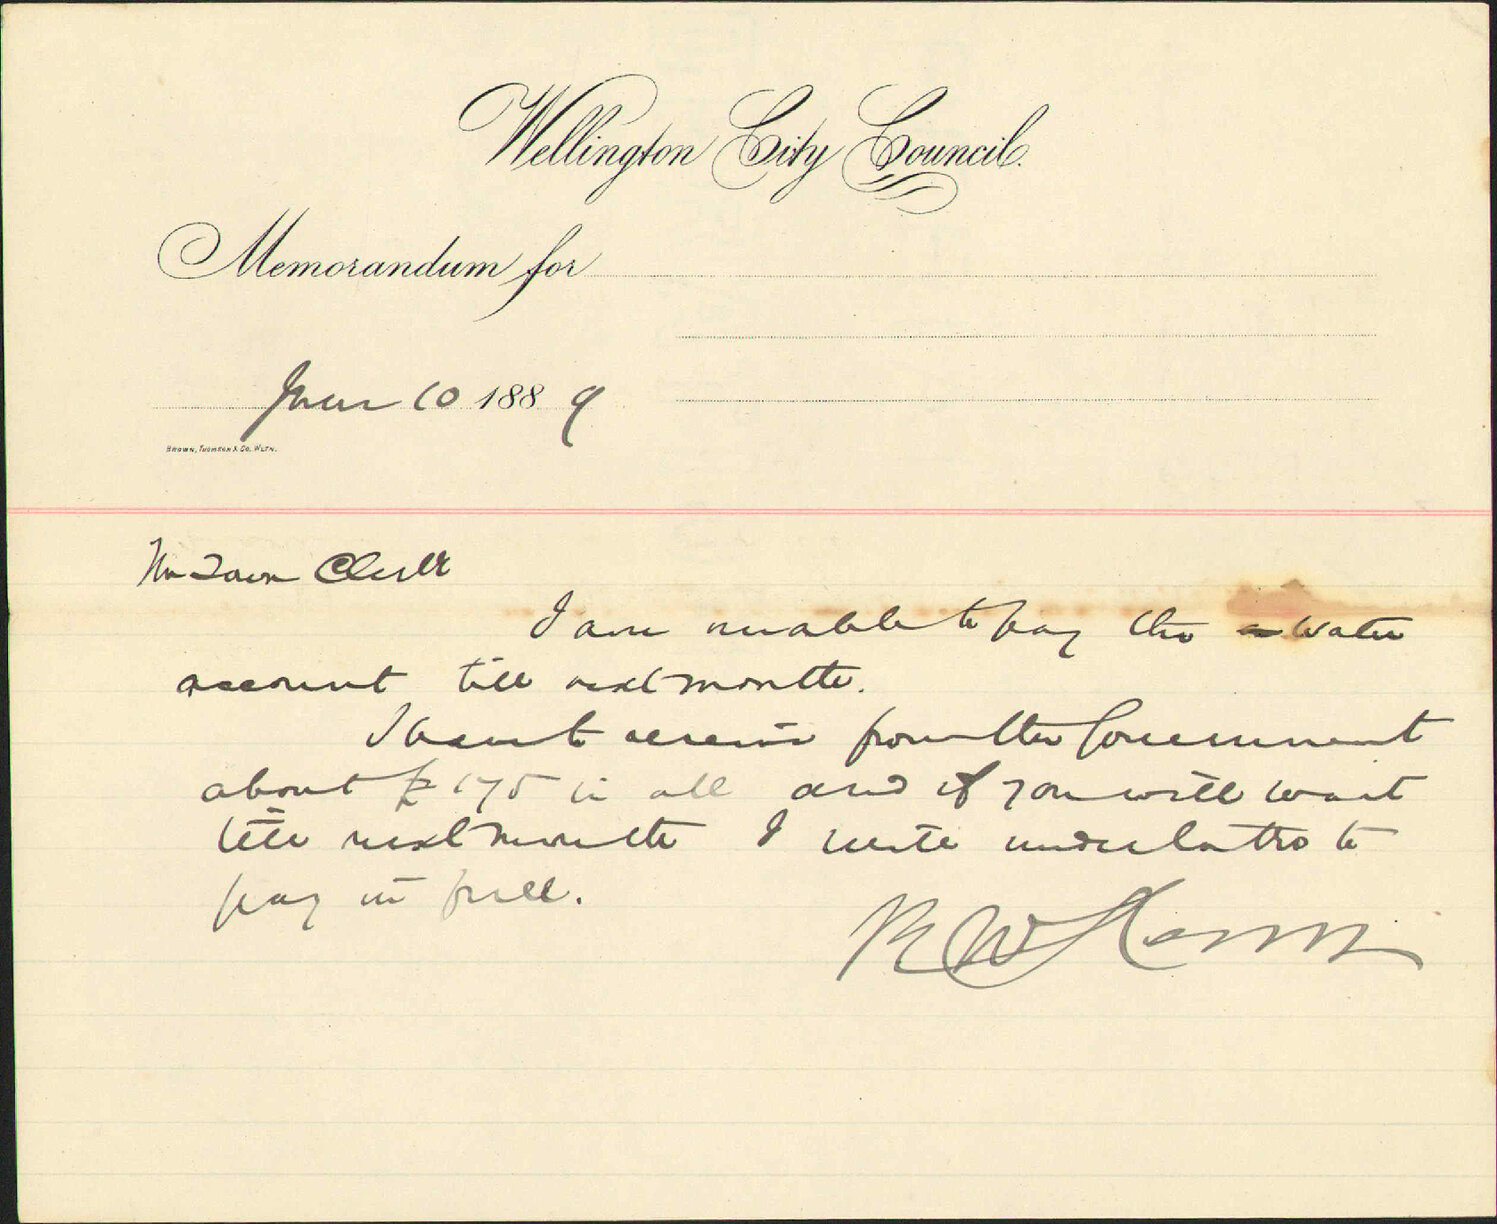 Wellington City Council.
Memorandum for
June 10 1889
Brown, Thomson & Co. Wltn.
Mr Town Clerk
I am unable to pay the water
account till next month.
I have to receive from the Government
about £175 in all and if you will wait
till next month I will undertake to
pay in full.
R W